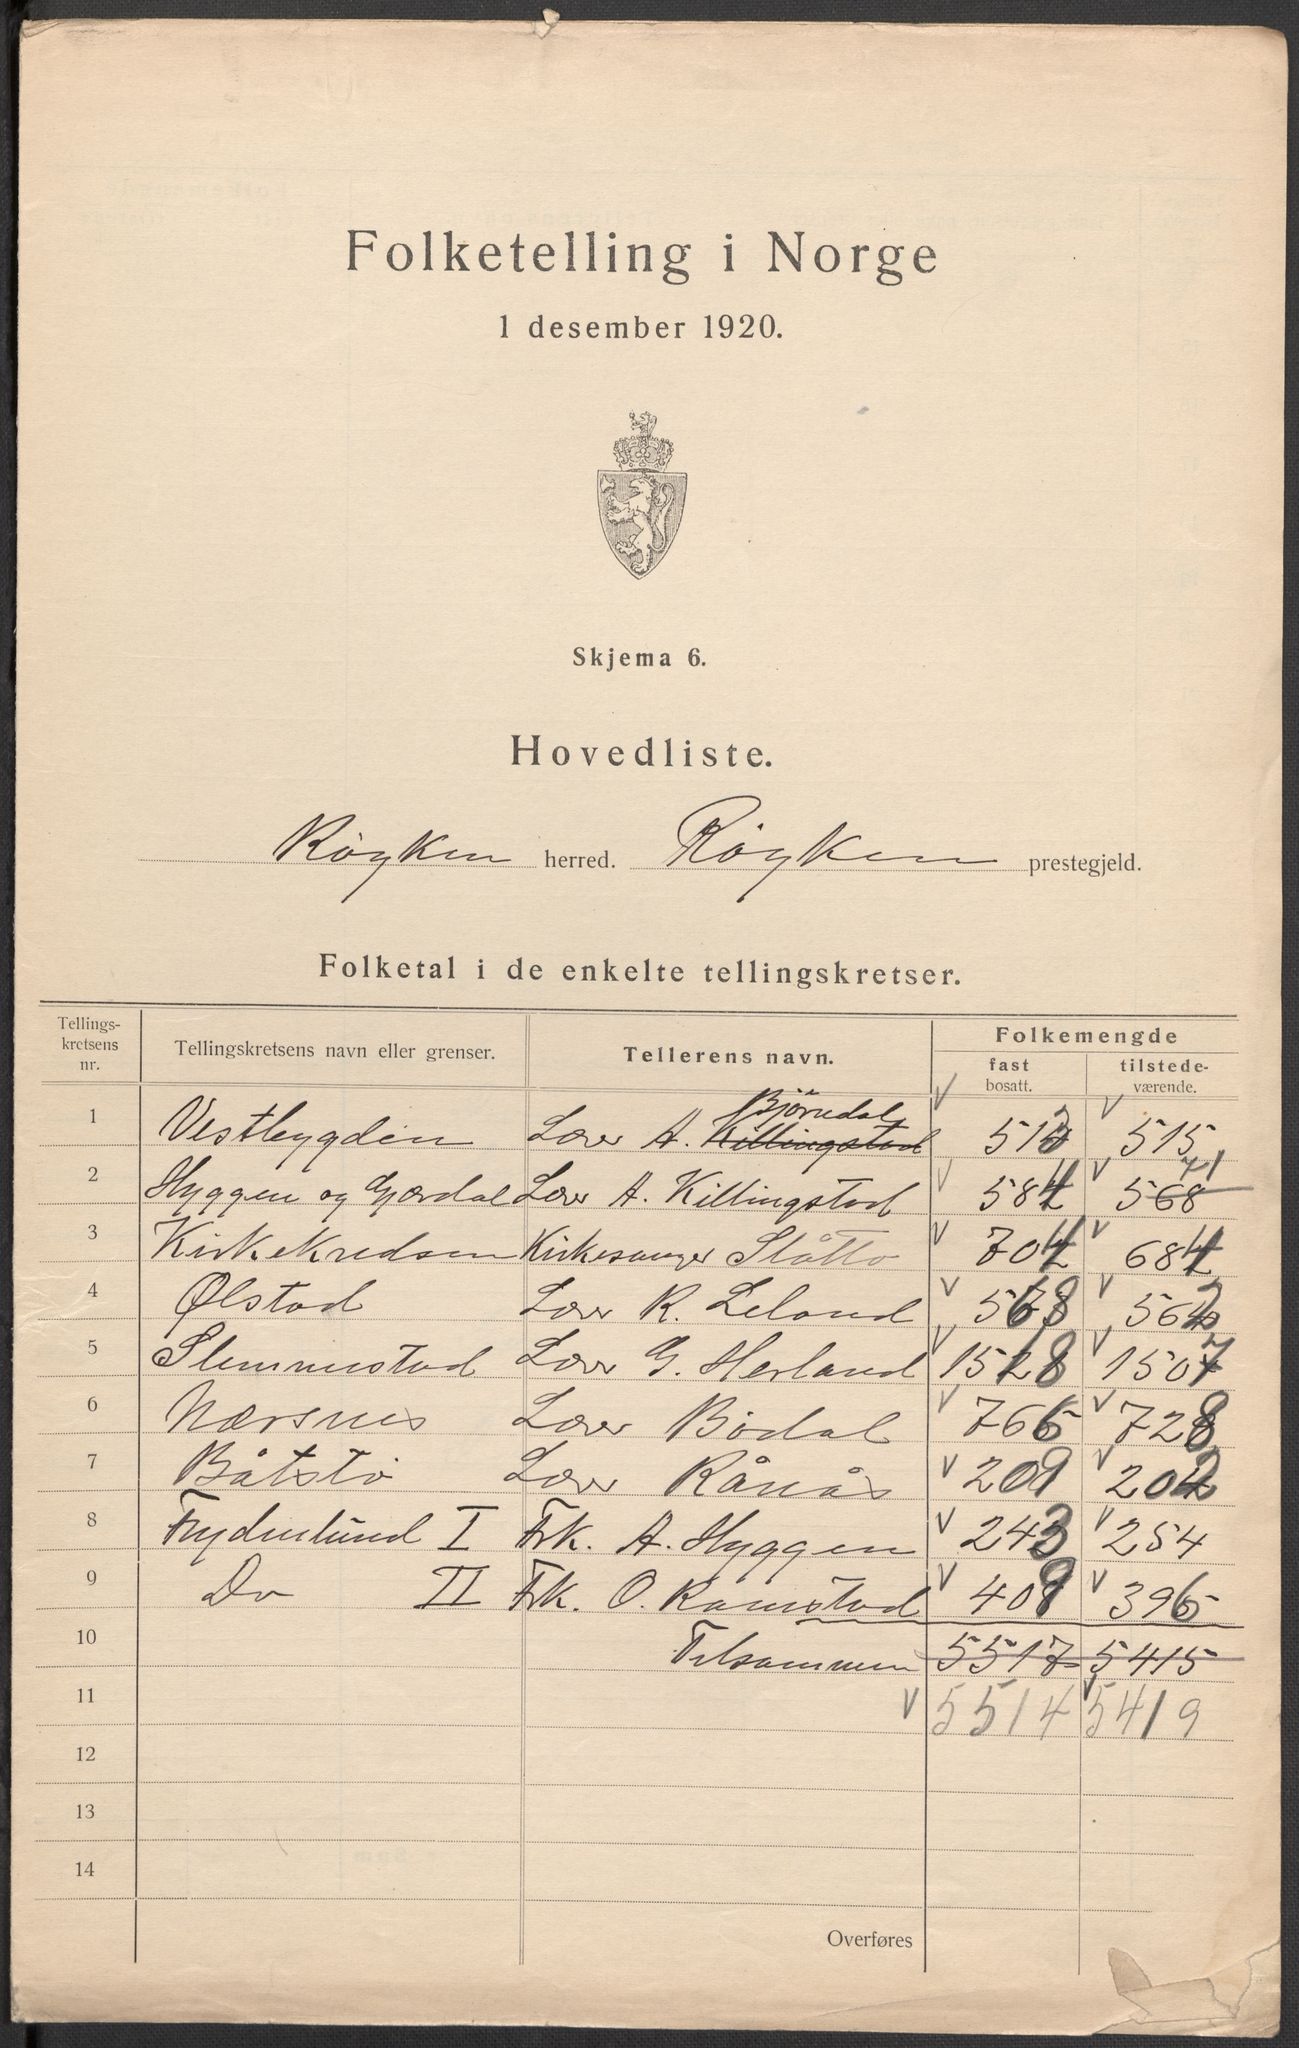 Folketelling i Norge
1 desember 1920.
Skjema 6.
Hovedliste.
Røyken herred. Røyken prestegjeld.
Folketal i de enkelte tellingskretser.
Tellings-
kretsens
nr.
Tellingskretsens navn eller grenser.
Tellerens navn.
Folkemengde
fast
bosatt.
tilstede-
værende.
Bjørndal
1 Vestbygden Lærer A. Killingstad 513 515
71
2 Hyggen og Gjerdal Lærer A. Killingstad 584 568
3 Kirkekredsen Kirkesanger Slåtto 704 684
4 Ølstad Lærer R. Leland 568 562
5 Slemmestad Lærer G. Herland 1518 1507
6 Nærsnes Lærer Bødal 766 728
7 Båtstø Lærer Rånås 209 202
8 Frydenlund I Frk. A. Hyggen 243 254
9 Do II Frk. O. Ramstad 409 396
10 Tilsammen 5517 5415
11 5514 5419
12
13
14
Overføres